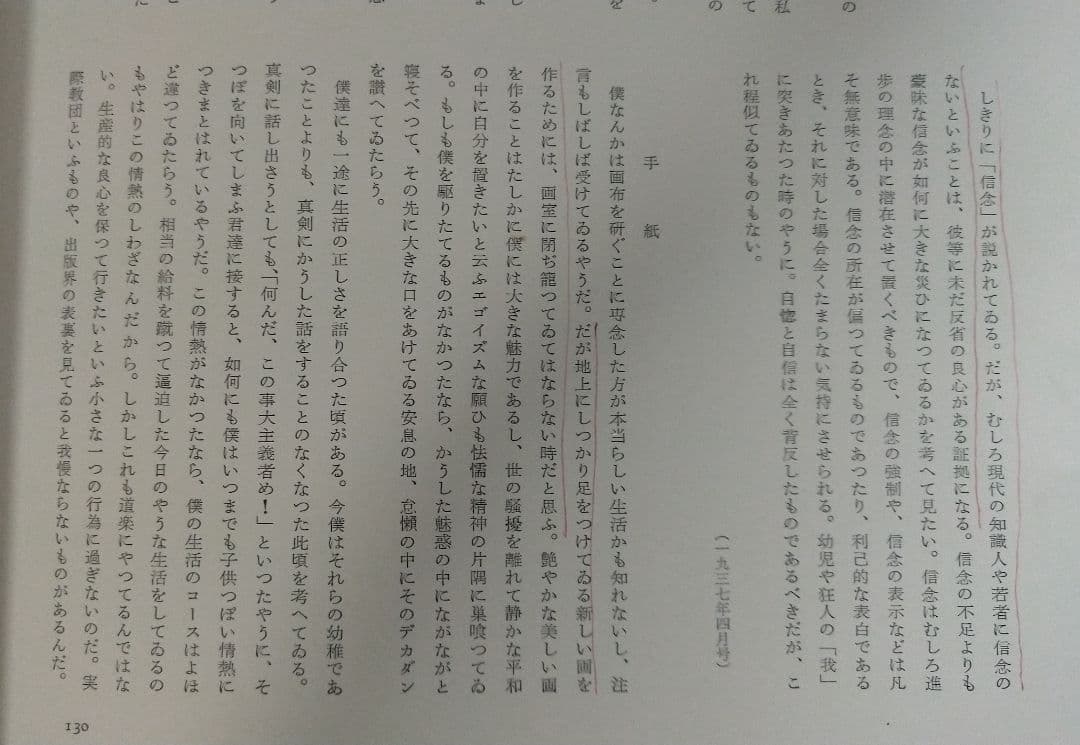 しきりに「信念」が説かれてゐる。だが、むしろ現代の知識人や若者に信念の
ないといふことは、彼等に未だ反省の良心がある証拠になる。信念の不足よりも
蒙昧な信念が如何に大きな災ひになつてゐるかを考へて見たい。信念はむしろ進
歩の理念の中に潜在させて置くべきもので、信念の強制や、信念の表示などは凡
そ無意味である。信念の所在が偏つてゐるものであつたり、利己的な表白である
とき、それに対した場合全くたまらない気持にさせられる。幼児や狂人の「我」
に突きあたつた時のやうに。自惚と自信は全く背反したものであるべきだが、こ
れ程似てゐるものもない。
（一九三七年四月号）
手紙
僕なんかは画布を研ぐことに専念した方が本当らしい生活かも知れないし、注
言もしばしば受けてゐるやうだ。だが地上にしつかり足をつけてゐる新しい画を
作るためには、画室に閉ぢ籠つてゐてはならない時だと思ふ。艶やかな美しい画
を作ることはたしかに僕には大きな魅力であるし、世の騒擾を離れて静かな平和
の中に自分を置きたいと云ふエゴイズムな願ひも怯懦な精神の片隅に巣喰つてゐ
る。もしも僕を駆りたてるものがなかつたなら、かうした魅惑の中にながながと
寝そべつて、その先に大きな口をあけてゐる安息の地、怠懶の中にそのデカダン
を讃へてゐたらう。
僕達にも一途に生活の正しさを語り合つた頃がある。今僕はそれらの幼稚であ
つたことよりも、真剣にかうした話をすることのなくなつた此頃を考へてゐる。
真剣に話し出さうとしても、「何んだ、この事大主義者め！」といつたやうに、そ
つぽを向いてしまふ君達に接すると、如何にも僕はいつまでも子供つぽい情熱に
つきまとはれているやうだ。この情熱がなかつたなら、僕の生活のコースはよほ
ど違つてゐたらう。相当の給料を蹴つて逼迫した今日のやうな生活をしてゐるの
もやはりこの情熱のしわざなんだから。しかしこれも道楽にやつてるんではな
い。生産的な良心を保つて行きたいといふ小さな一つの行為に過ぎないのだ。実
際教団といふものや、出版界の表裏を見てゐると我慢ならないものがあるんだ。
130